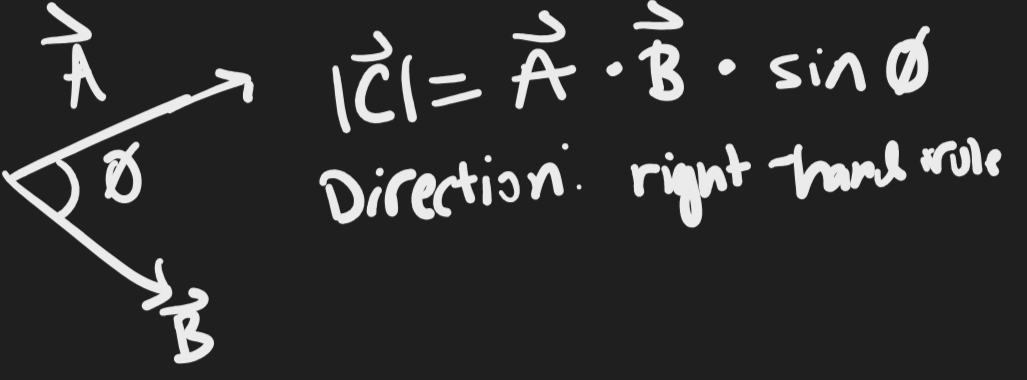 A⃗
|C⃗| = A⃗ · B⃗ · sin Ø
Ø
Direction: right-hand rule
B⃗